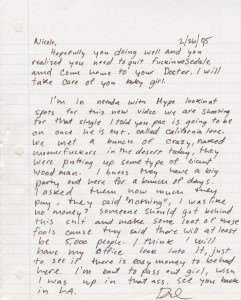 Nicole,                    2/26/95
Hopefully you doing well and you
realised you need to quit fuckin w/Sedale
and come home to your Doctor. I will
take care of you baby girl.
I'm in nevada with Hype lookin at
spots for this new video we are shooting
for that single I told you he is going to be
on once he is out, called California love.
We met a bunch of crazy, naked
muthafuckers in the desert today, they
were putting up some type of giant
wood man. I guess they have a big
party out here for a bunch of days.
I asked them how much they
pay, they said "nothing", I was like
no money? someone should get behind
this shit and make some loot off these
fools cause they said there will at least
be 5,000 people. I think I will
have my office look into it, just
to see if there is easy money to be had
here. I'm bout to pass out girl, wish
I was up in that ass. see you back
in LA.
Dre